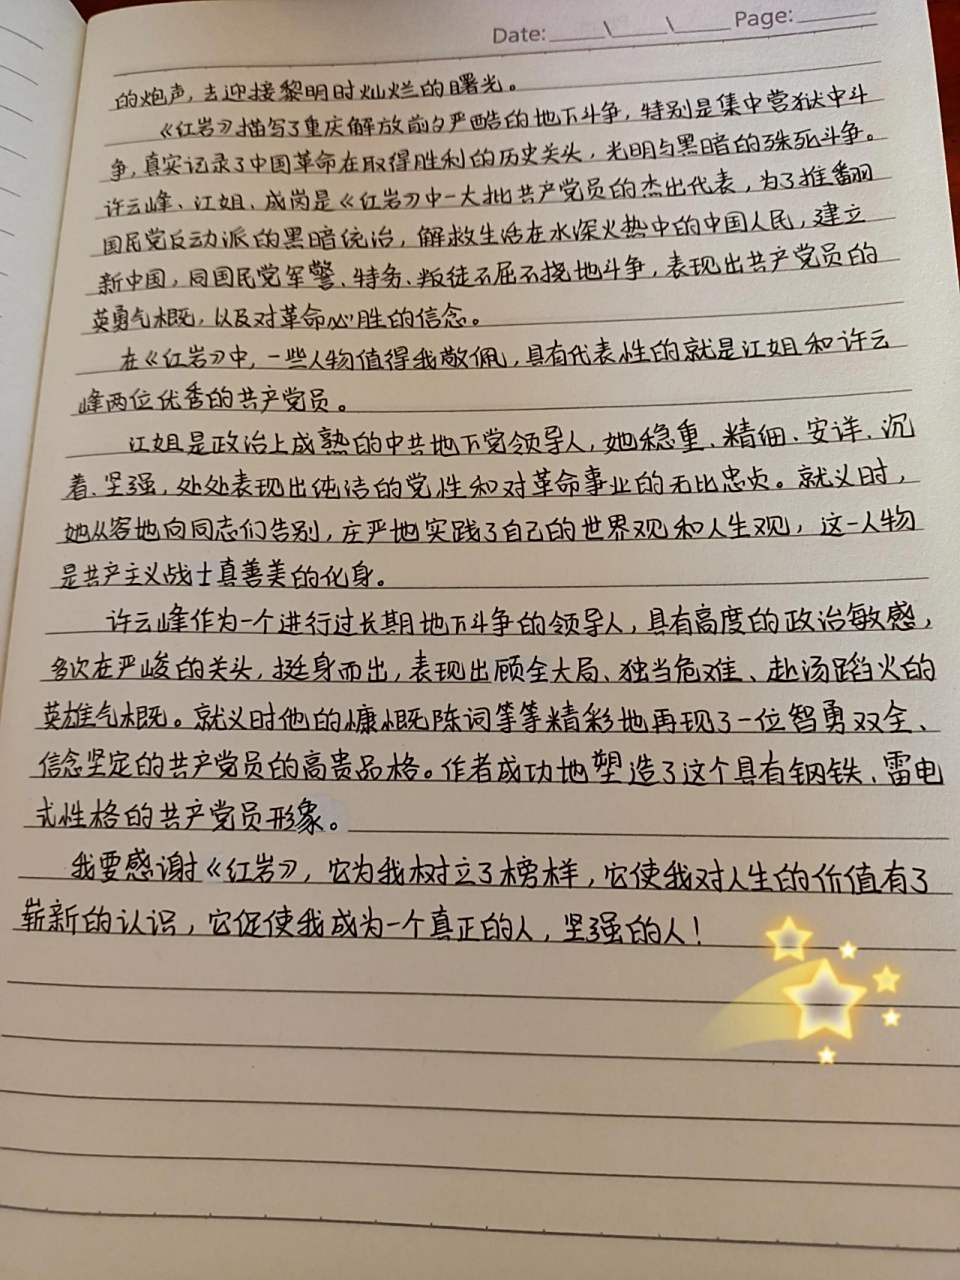 Date: \ \ Page:
的炮声,去迎接黎明时灿烂的曙光。
《红岩》描写了重庆解放前夕严酷的地下斗争,特别是集中营狱中斗
争,真实记录了中国革命在取得胜利的历史关头,光明与黑暗的殊死斗争。
许云峰、江姐、成岗是《红岩》中一大批共产党员的杰出代表,为了推翻
国民党反动派的黑暗统治,解救生活在水深火热中的中国人民,建立
新中国,同国民党军警、特务、叛徒不屈不挠地斗争,表现出共产党员的
英勇气概,以及对革命必胜的信念。
在《红岩》中,一些人物值得我敬佩,具有代表性的就是江姐和许云
峰两位优秀的共产党员。
江姐是政治上成熟的中共地下党领导人,她稳重、精细、安详、沉
着、坚强,处处表现出纯洁的党性和对革命事业的无比忠贞。就义时,
她从容地向同志们告别,庄严地实践了自己的世界观和人生观,这一人物
是共产主义战士真善美的化身。
许云峰作为一个进行过长期地下斗争的领导人,具有高度的政治敏感,
多次在严峻的关头,挺身而出,表现出顾全大局、独当危难、赴汤蹈火的
英雄气概。就义时他的慷慨陈词等等精彩地再现了一位智勇双全、
信念坚定的共产党员的高贵品格。作者成功地塑造了这个具有钢铁、雷电
式性格的共产党员形象。
我要感谢《红岩》,它为我树立了榜样,它使我对人生的价值有了
崭新的认识,它促使我成为一个真正的人,坚强的人!